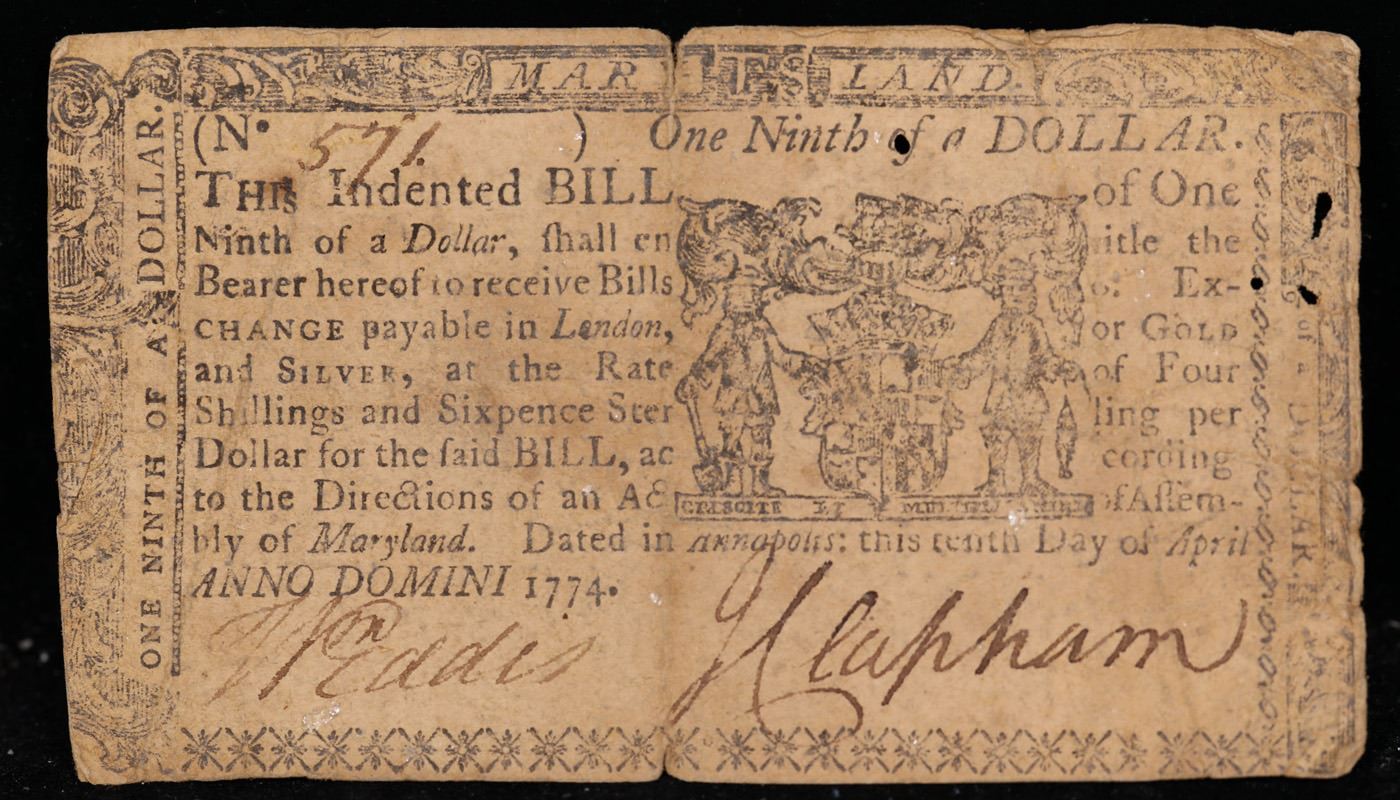 MARYLAND.
(No. 571. ) One Ninth of a DOLLAR.
THIS Indented BILL of One
Ninth of a Dollar, ſhall entitle the
Bearer hereof to receive Bills o: Ex-
CHANGE payable in London, or GOLD
and SILVER, at the Rate of Four
Shillings and Sixpence Sterling per
Dollar for the ſaid BILL, according
to the Directions of an Act of Aſſem-
bly of Maryland. Dated in Annapolis: this tenth Day of April
ANNO DOMINI 1774.
CRESCITE ET MULTIPLICAMINI
Wm Eddis J Clapham
ONE NINTH OF A DOLLAR.
of a DOLLAR.